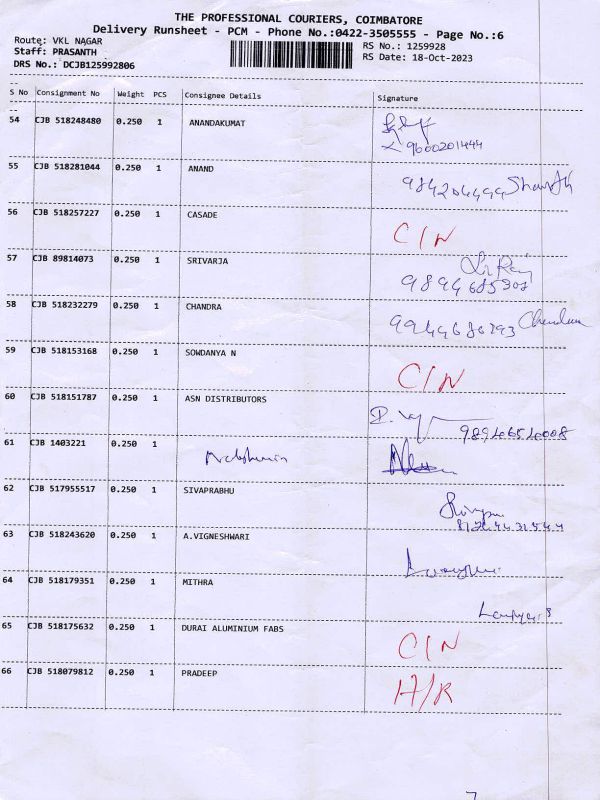 THE PROFESSIONAL COURIERS, COIMBATORE
Delivery Runsheet - PCM - Phone No.:0422-3505555 - Page No.:6
Route: VKL NAGAR
RS No.: 1259928
Staff: PRASANTH
RS Date: 18-Oct-2023
DRS No.: DCJB125992806
S No Consignment No Weight PCS Consignee Details Signature
54 CJB 518248480 0.250 1 ANANDAKUMAT
9600201444
55 CJB 518281044 0.250 1 ANAND
56 CJB 518257227 0.250 1 CASADE C/N
57 CJB 89814073 0.250 1 SRIVARJA
9894685908
58 CJB 518232279 0.250 1 CHANDRA
59 CJB 518153168 0.250 1 SOWDANYA N C/N
60 CJB 518151787 0.250 1 ASN DISTRIBUTORS
61 CJB 1403221 0.250 1
62 CJB 517955517 0.250 1 SIVAPRABHU
63 CJB 518243620 0.250 1 A.VIGNESHWARI
64 CJB 518179351 0.250 1 MITHRA
65 CJB 518175632 0.250 1 DURAI ALUMINIUM FABS C/N
66 CJB 518079812 0.250 1 PRADEEP